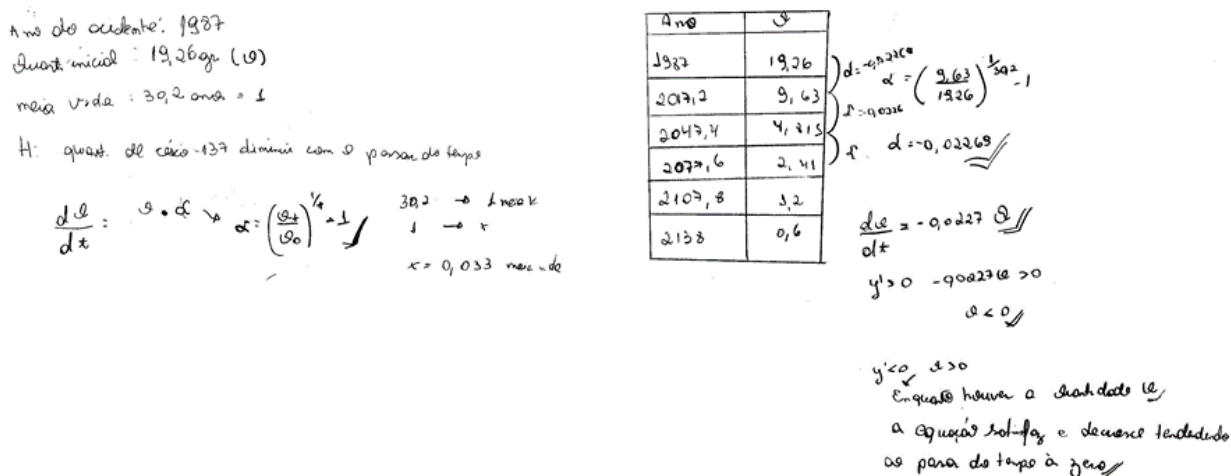 Ano do acidente: 1987
Quant. inicial : 19,26 gr (φ)
meia vida : 30,2 anos = 1
H: quant. de césio-137 diminui com o passar do tempo
dφ/dt = φ . α → α = (φt/φ0)^1/t - 1
30,2 → 1 meia v
1 → x
x = 0,033 meia vida
Ano φ
1987 19,26
2017,2 9,63
2047,4 4,815
2077,6 2,41
2107,8 1,2
2138 0,6
α = (9,63/19,26)^1/30,2 - 1
α = -0,02269
dφ/dt = -0,0227 φ
y'>0 -0,0227φ >0
φ < 0
y'<0, φ>0
Enquanto houver a quantidade φ,
a equação satisfaz e decresce tendendo
ao passar do tempo à zero